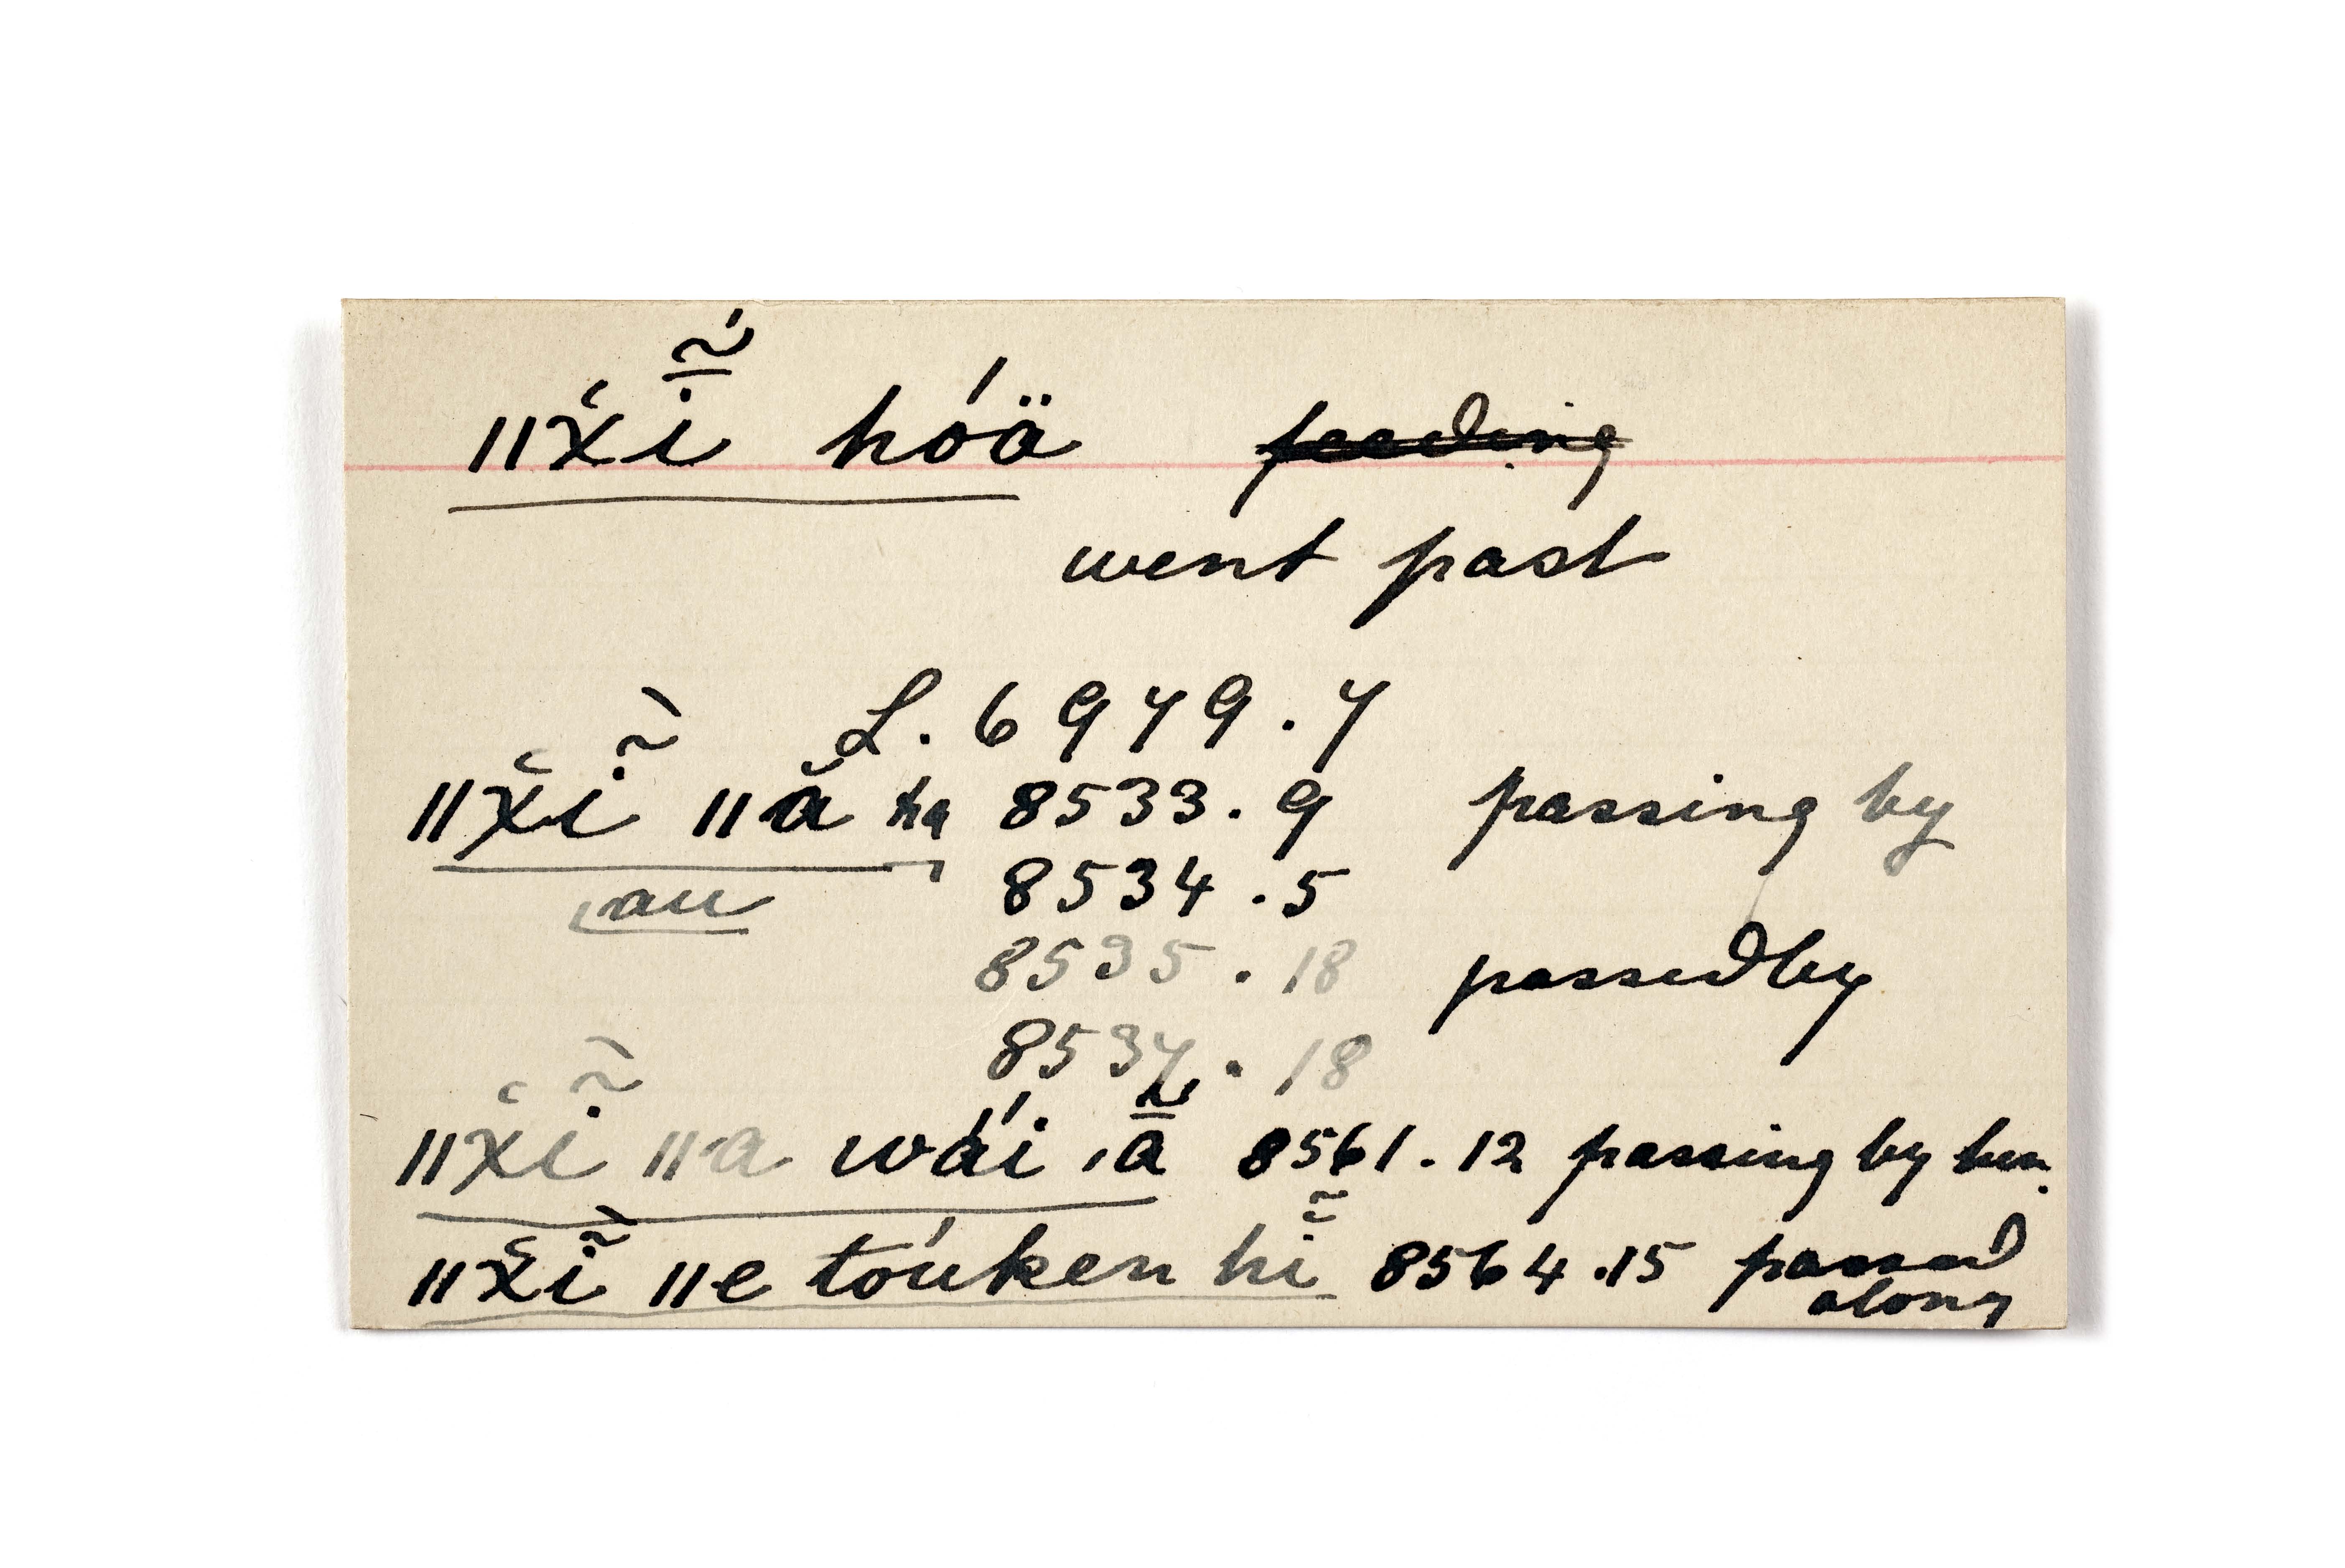 ǁχ̆ĩ́ hóä ~~feeding~~
went past
L. 6979.7
ǁχ̆ĩ ǁă ha 8533.9 passing by
au 8534.5
8535.18 passed by
8537.18
ǁχ̆ĩ ǁa wái ,ā̃ 8561.12 passing by her.
ǁχ̆ĩ ǁe tóuken hĩ 8564.15 passed
along